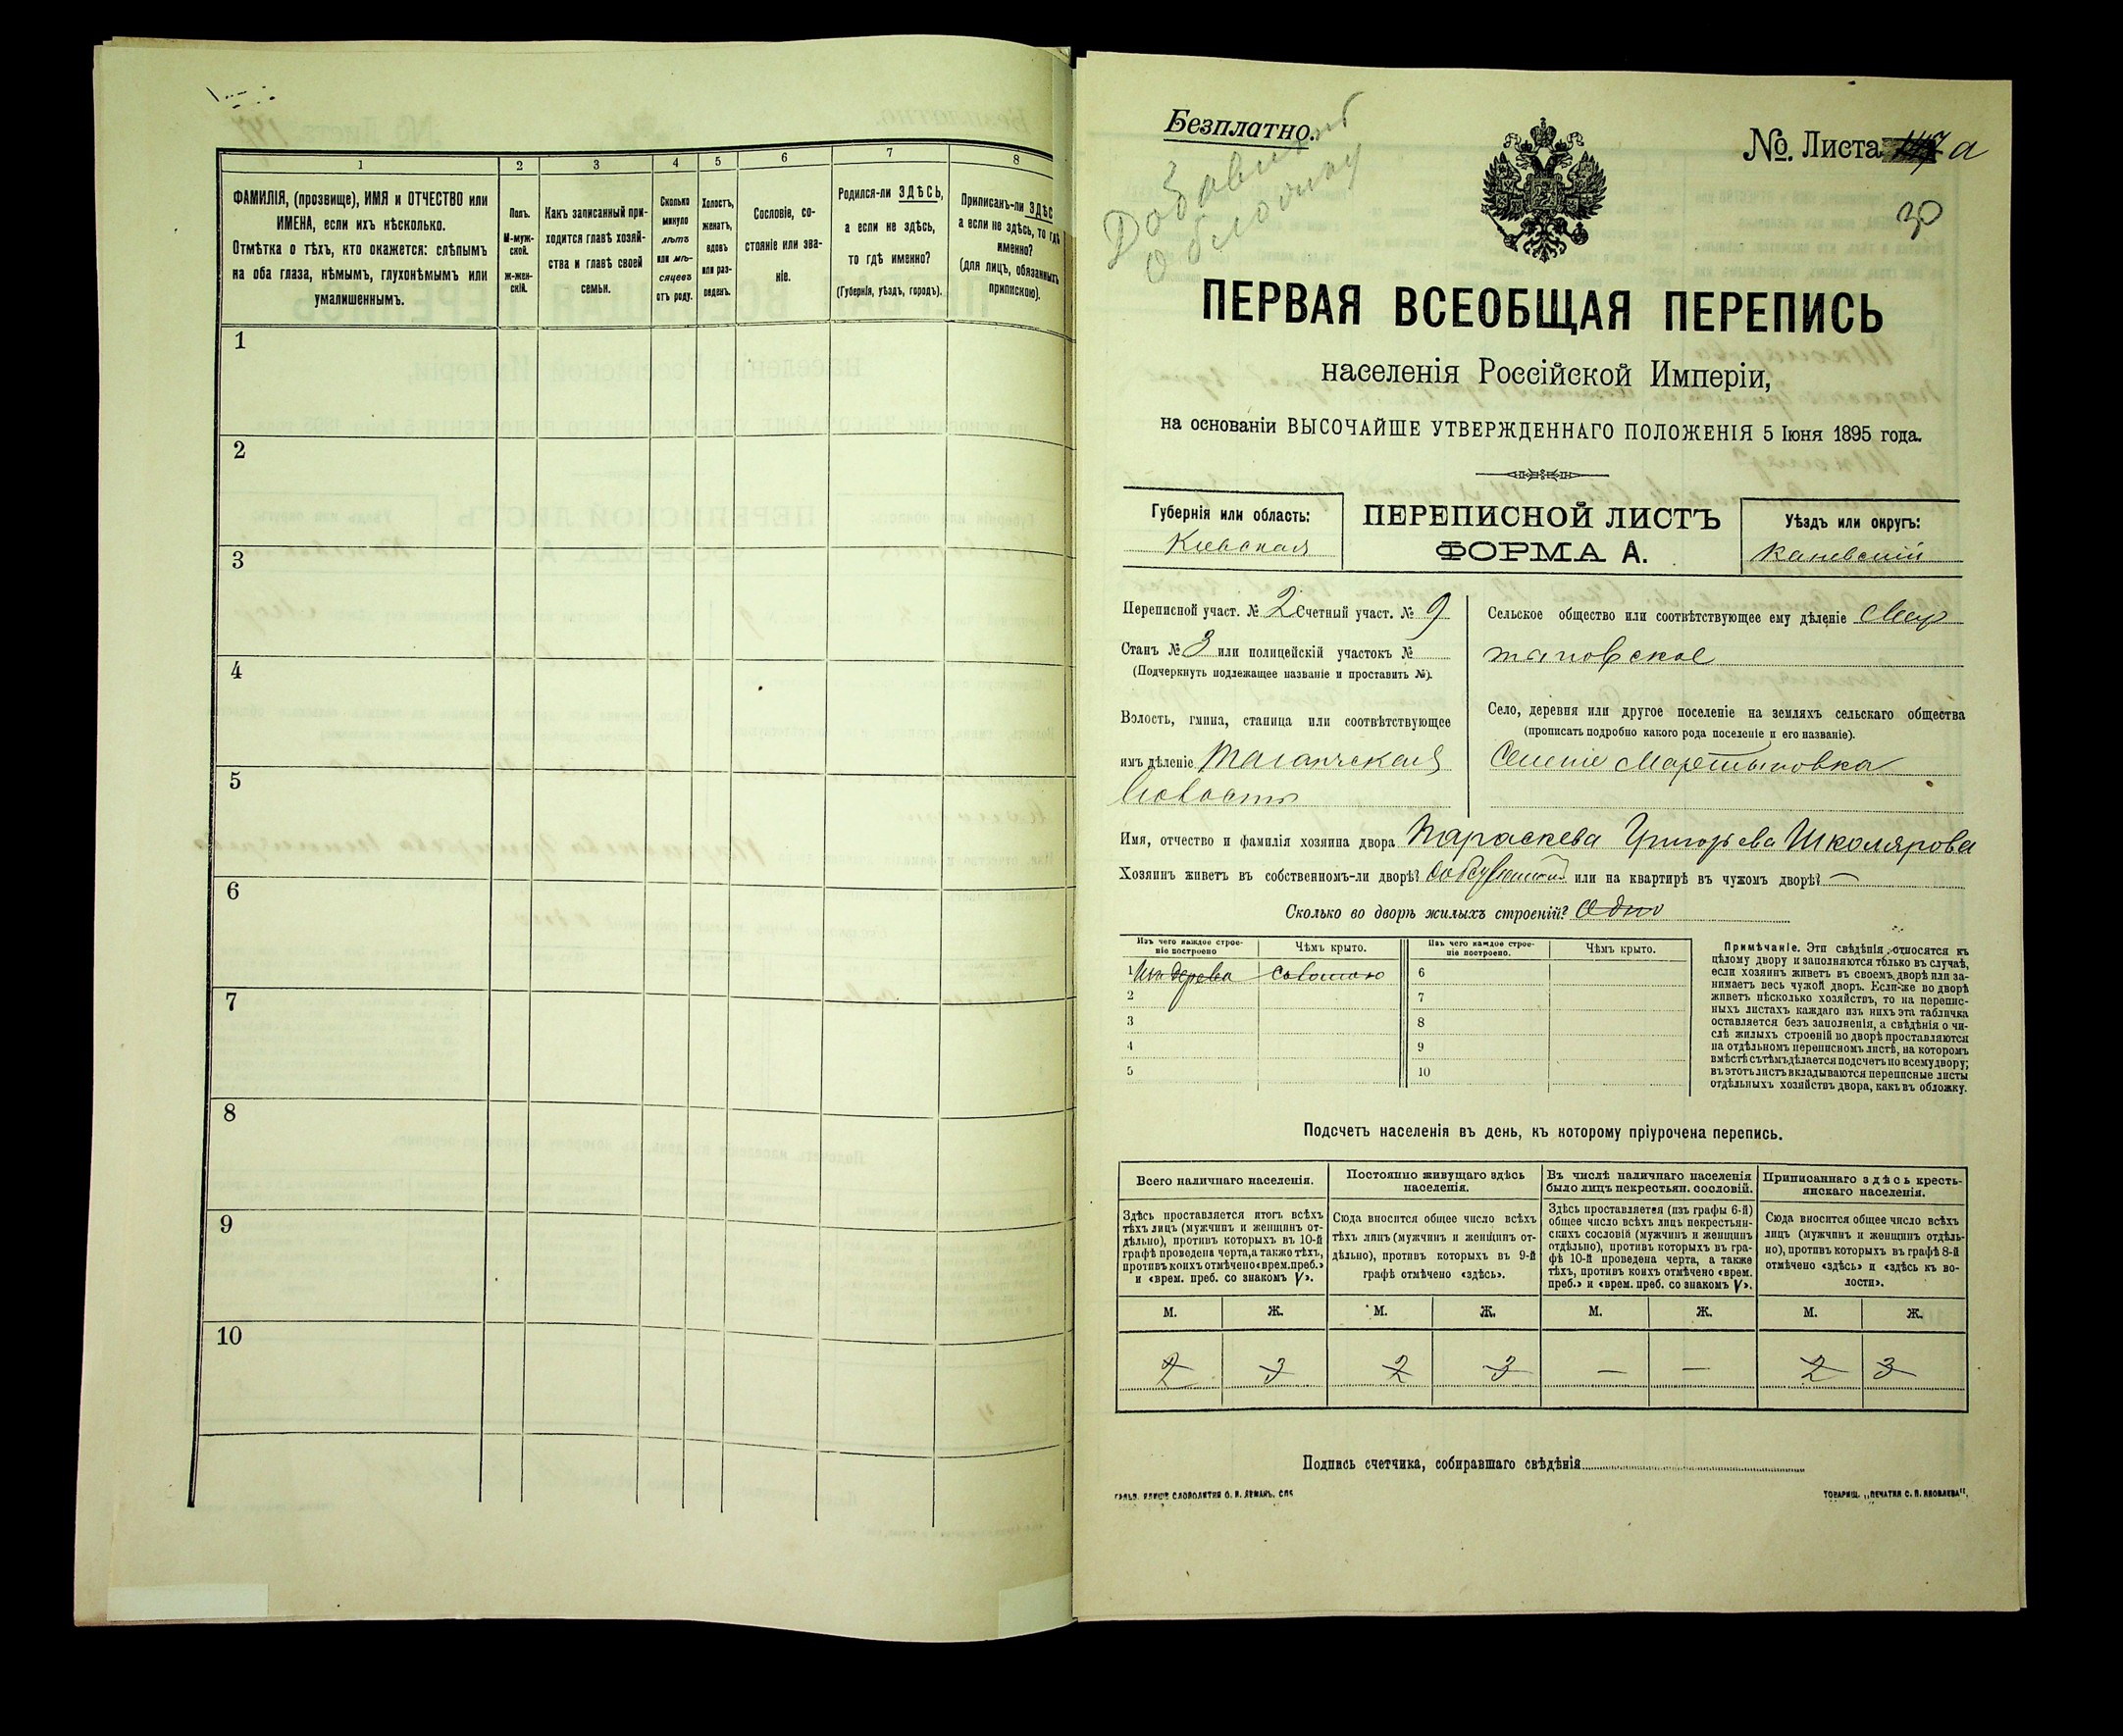 1 2 3 4 5 6 7 8
ФАМИЛІЯ, (прозвище), ИМЯ и ОТЧЕСТВО или
ИМЕНА, если ихъ нѣсколько.
Отмѣтка о тѣхъ, кто окажется: слѣпымъ
на оба глаза, нѣмымъ, глухонѣмымъ или
умалишеннымъ.
Полъ.
М-муж-
ской.
ж-жен-
скій.
Какъ записанный при-
ходится главѣ хозяй-
ства и главѣ своей
семьи.
Сколько
минуло
лѣтъ
или мѣ-
сяцевъ
отъ роду.
Холостъ,
женатъ,
вдовъ
или раз-
веденъ.
Сословіе, со-
стояніе или зва-
ніе.
Родился-ли ЗДѢСЬ,
а если не здѣсь,
то гдѣ именно?
(Губернія, уѣздъ, городъ).
Приписанъ-ли ЗДѢС
а если не здѣсь, то гдѣ
именно?
(для лицъ, обязанныхъ
припискою).
1
2
3
4
5
6
7
8
9
10
Безплатно.
№. Листа а
30
ПЕРВАЯ ВСЕОБЩАЯ ПЕРЕПИСЬ
населенія Россійской Имперіи,
на основаніи ВЫСОЧАЙШЕ УТВЕРЖДЕННАГО ПОЛОЖЕНІЯ 5 Іюня 1895 года.
Губернія или область:
Кіевская
ПЕРЕПИСНОЙ ЛИСТЪ
ФОРМА А.
Уѣздъ или округъ:
Каневскій
Переписной участ. № 2 Счетный участ. № 9
Станъ № 3 или полицейскій участокъ №
(Подчеркнуть подлежащее названіе и проставить №).
Волость, гмина, станица или соотвѣтствующее
имъ дѣленіе Таганчская
Волость
Сельское общество или соотвѣтствующее ему дѣленіе Мар
тыновское
Село, деревня или другое поселеніе на земляхъ сельскаго общества
(прописать подробно какого рода поселеніе и его названіе).
Селеніе Мартыновка
Имя, отчество и фамилія хозяина двора Параскева Григорьева Школярова
Хозяинъ живетъ въ собственномъ-ли дворѣ? или на квартирѣ въ чужомъ дворѣ? —
Сколько во дворѣ жилыхъ строеній? Одно
Изъ чего каждое строе-
ніе построено
Чѣмъ крыто.
Изъ чего каждое строе-
ніе построено.
Чѣмъ крыто.
1 Изъ дерева Соломою 6
2 7
3 8
4 9
5 10
Примѣчаніе. Эти свѣдѣнія относятся къ
цѣлому двору и заполняются только въ случаѣ,
если хозяинъ живетъ въ своемъ дворѣ или за-
нимаетъ весь чужой дворъ. Если-же во дворѣ
живетъ нѣсколько хозяйствъ, то на перепис-
ныхъ листахъ каждаго изъ нихъ эта табличка
оставляется безъ заполненія, а свѣдѣнія о чи-
слѣ жилыхъ строеній во дворѣ проставляются
на отдѣльномъ переписномъ листѣ, на которомъ
вмѣстѣ съ тѣмъ дѣлается подсчетъ по всему двору;
въ этотъ листъ вкладываются переписные листы
отдѣльныхъ хозяйствъ двора, какъ въ обложку.
Подсчетъ населенія въ день, къ которому пріурочена перепись.
Всего наличнаго населенія.
Постоянно живущаго здѣсь
населенія.
Въ числѣ наличнаго населенія
было лицъ некрестьян. сословій.
Приписаннаго здѣсь кресть-
янскаго населенія.
Здѣсь проставляется итогъ всѣхъ
тѣхъ лицъ (мужчинъ и женщинъ от-
дѣльно), противъ которыхъ въ 10-й
графѣ проведена черта, а также тѣхъ,
противъ коихъ отмѣчено «врем. преб.»
и «врем. преб. со знакомъ V».
Сюда вносится общее число всѣхъ
тѣхъ лицъ (мужчинъ и женщинъ от-
дѣльно), противъ которыхъ въ 9-й
графѣ отмѣчено «здѣсь».
Здѣсь проставляется (изъ графы 6-й)
общее число всѣхъ лицъ некрестьян-
скихъ сословій (мужчинъ и женщинъ
отдѣльно), противъ которыхъ въ гра-
фѣ 10-й проведена черта, а также
тѣхъ, противъ коихъ отмѣчено «врем.
преб.» и «врем. преб. со знакомъ V».
Сюда вносится общее число всѣхъ
лицъ (мужчинъ и женщинъ отдѣль-
но), противъ которыхъ въ графѣ 8-й
отмѣчено «здѣсь» и «здѣсь къ во-
лости».
М. Ж. М. Ж. М. Ж. М. Ж.
2 3 2 3 — — 2 3
Подпись счетчика, собиравшаго свѣдѣнія
ТОВАРИЩ. „ПЕЧАТНЯ С. П. ЯКОВЛЕВА".